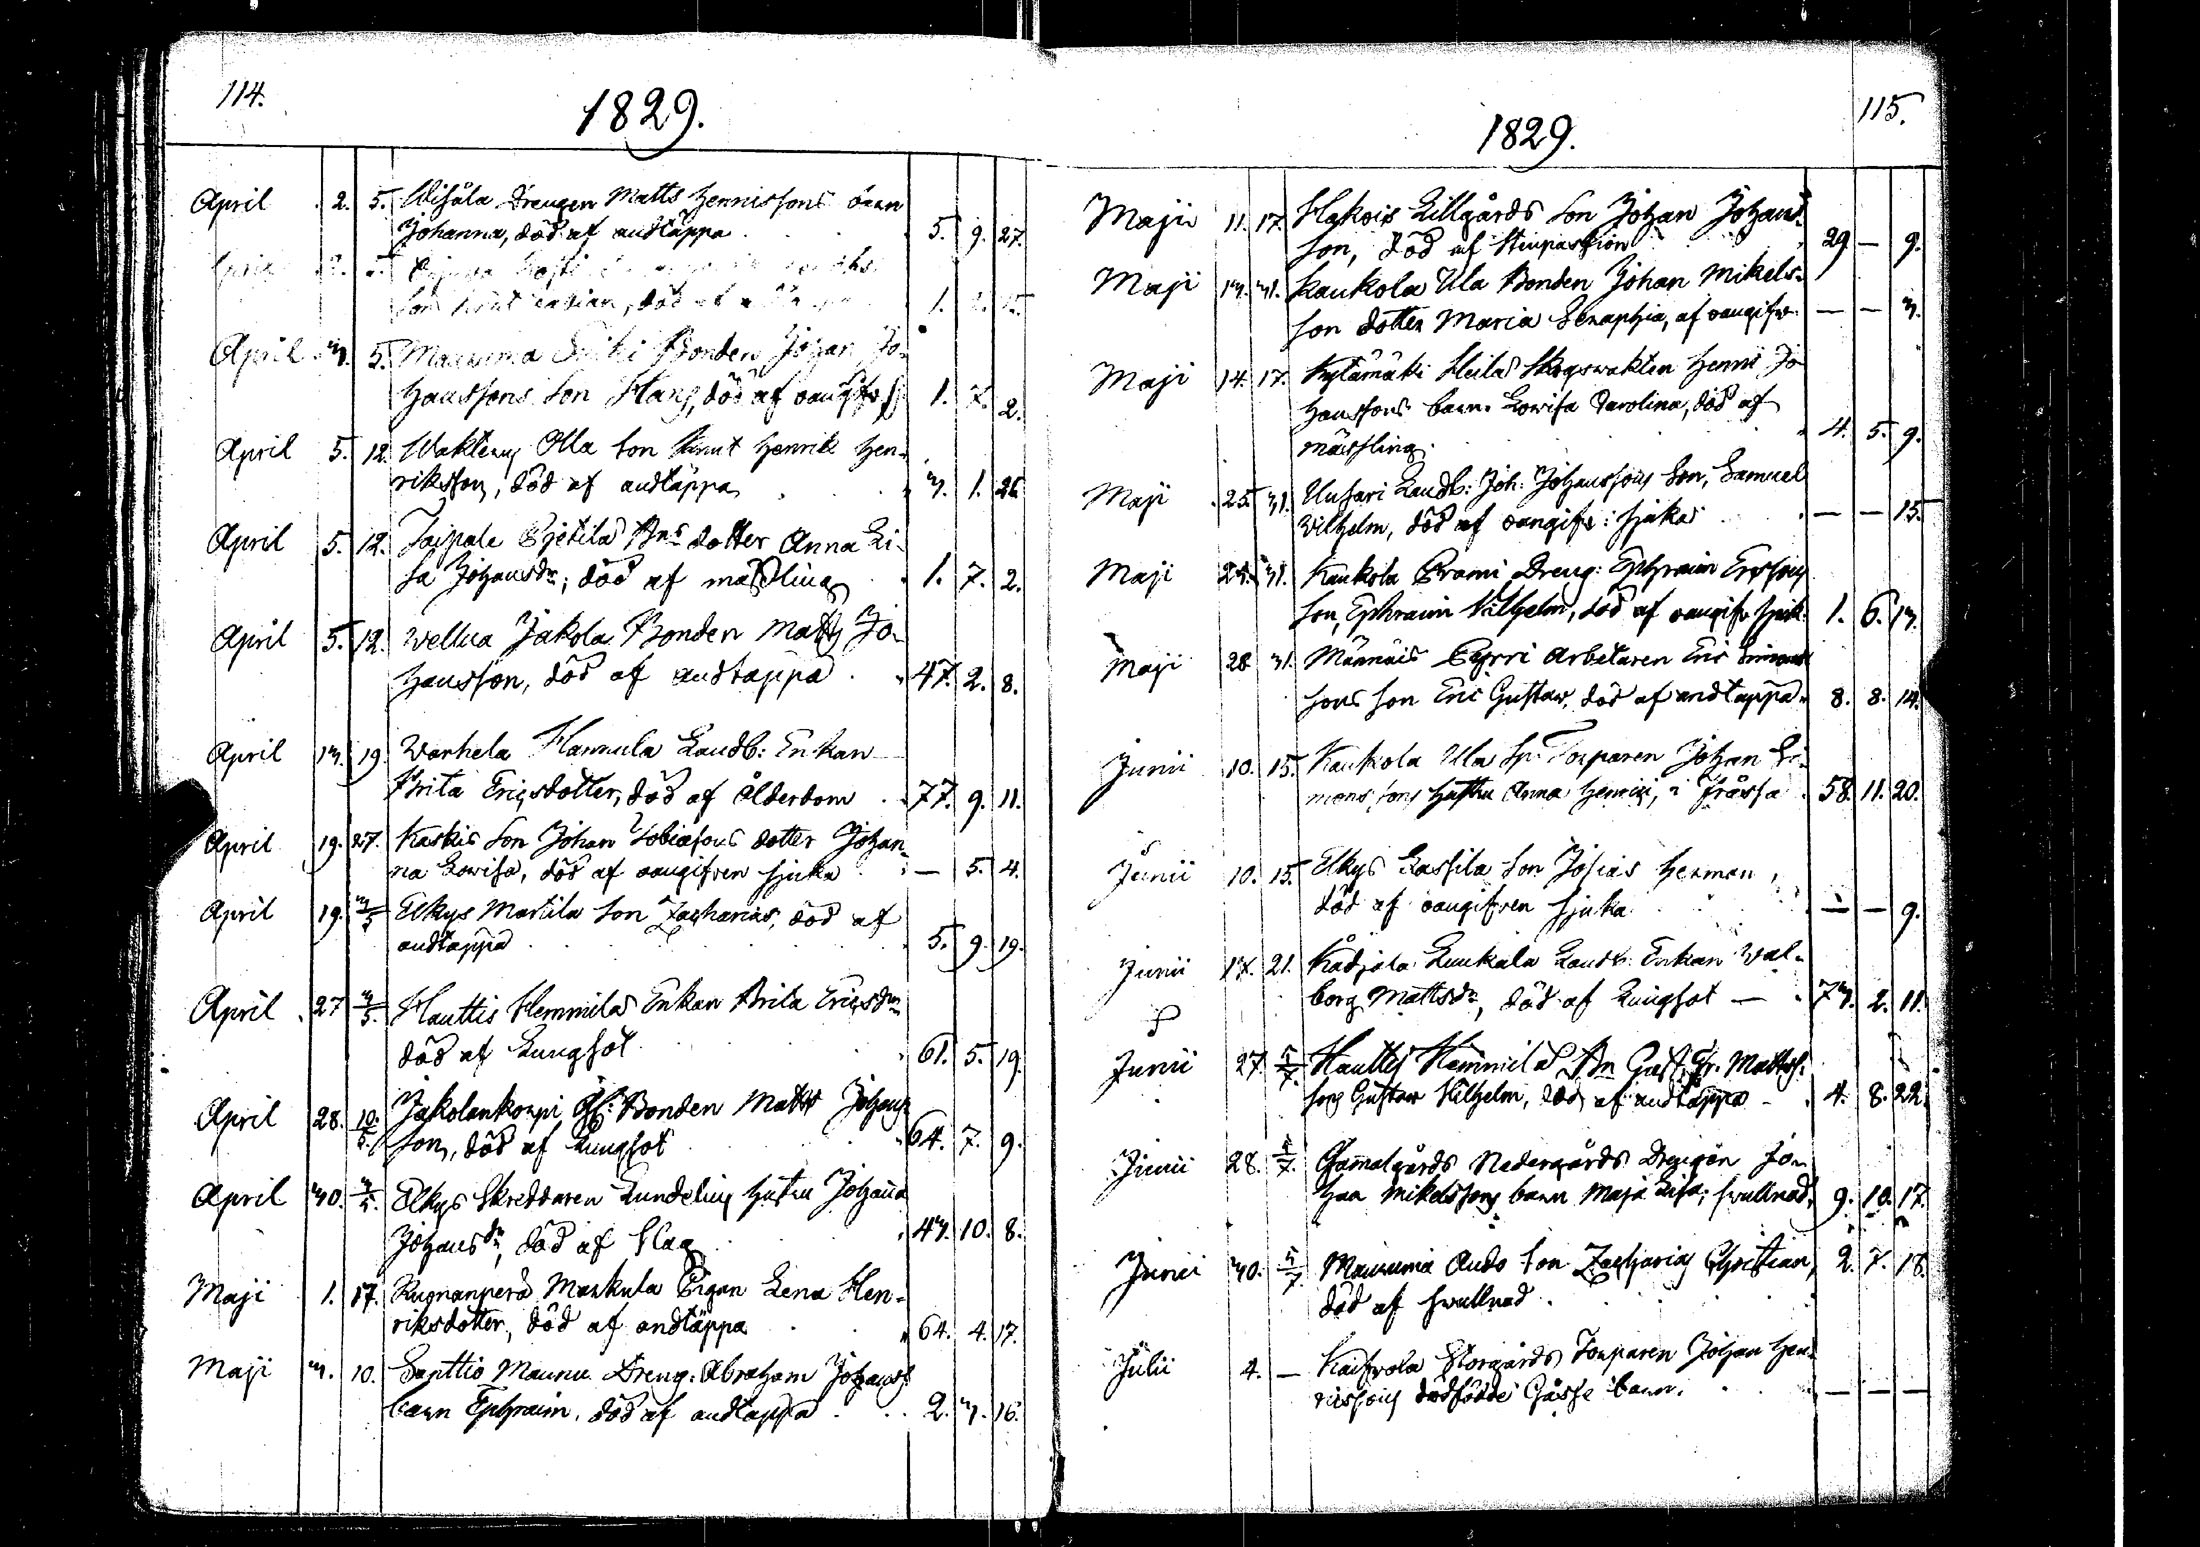 114.
1829.
April 2. 5. Drengen Matts Henrissons barn
Johanna, död af andtäppa 5. 9. 27.
2. 5.
son, död af 1.
April 3. 5. Maunula Bonden Johan Jo-
hanssons Son Hans, död af oangifw. 1. 7. 2.
April 5. 12. Olla Son Knut Henrik Hen-
riksson, död af andtäppa 3. 1. 26.
April 5. 12. Taipale Bns dotter Anna Li-
sa Johansdr, död af mässling 1. 7. 2.
April 5. 12. Wellua Jakola Bonden Matts Jo-
hansson, död af andtäppa 47. 2. 8.
April 13. 19. Warhela Hannula Landb: Enkan
Brita Ericsdotter, död af Ålderdom 77. 9. 11.
April 19. 27. Kaskis Son Johan Tobiæsons dotter Johan-
na Lowisa, död af oangifven sjuka — 5. 4.
April 19. 3/5 Elkys Martila Son Zacharias, död af
andtäppa 5. 9. 19.
April 27 3/5. Hauttis Hemmilä Enkan Brita Ericsdr
död af Lungsot 61. 5. 19.
April 28. 10/5. Jakolankorpi Bonden Matts Johans
son, död af Lungsot 64. 7. 9.
April 30. 3/5. Elkys Skreddaren Lundelius hustru Johanna
Johansdr, död af Slag 43. 10. 8.
Maji 1. 17. Ruonanperä Markula Pigan Lena Hen-
riksdotter, död af andtäppa 64. 4. 17.
Maji 3. 10. Santtio Maunu Dreng: Abraham Johanss
barn Ephraim, död af andtäppa 2. 3. 16.
115.
1829.
Maji 11. 17. Hakois Lillgårds Son Johan Johans-
son, död af 29 — 9.
Maji 13. 31. Kaukola Ula Bonden Johan Mikels-
son dotter Maria Seraphia, af oangifw. — — 3.
Maji 14. 17. Kytämäki Heilä Skogswakten Henr. Jo
hanssons barn Lowisa Carolina, död af
mässling 4. 5. 9.
Maji 25 31. Landb: Joh: Johanssons Son, Samuel
Wilhelm, död af oangifv: sjuka — — 15.
Maji 31. Kaukola Dreng: Ephraim Ersons
son, Ephraim Wilhelm, död af oangifv sjuk. 1. 6. 13.
Maji 28 31. Männäis Pyrri Arbetaren Eric
sons son Eric Gustaw, död af andtäppa 8. 8. 14.
Junii 10. 15. Kaukola Ulla Torparen Johan Si-
mons sons hustru Anna Henrici, i Frässa 58. 11. 20.
Junii 10. 15. Elkys Lassila Son Josias Herman,
död af oangifven sjuka — — 9.
Junii 17. 21. Kådjala Luukala Landb: Enkan Wal-
borg Mattsdr, död af Lungsot 73. 2. 11.
Junii 27. 5/7. Hauttis Hemmilä Bn Gust. Fr. Matts
sons Gustaw Wilhelm, död af andtäppa 4. 8. 22.
Junii 28. 5/7. Gamalgårds Nedergårds Drengen Jo-
han Mikelssons barn Maja Lisa, swullnad, 9. 10. 17.
Junii 30. 5/7. Maunuma Son Zacharias Christian, 2. 7. 18.
död af swullnad
Julii 4. — Storgårds Torparen Johan Hen-
ricssons dödfödde Gosse barn. — — —